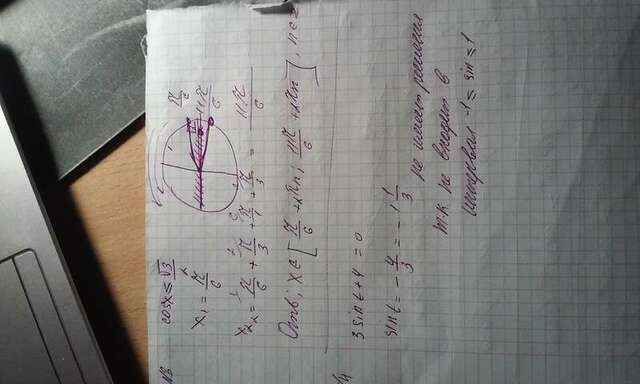 №3 cosx ≤ √3
π/6
11π/6
x₁ = π/6
x₂ = π/6 + π/3 + π/1 + π/3 = 11π/6
Отв: x ∈ [π/6 + 2πn; 11π/6 + 2πn] n ∈ Z
№4
3 sin t + 4 = 0
sin t = - 4/3 = - 1 1/3 не имеет решения
т.к не входит в
интервал -1 ≤ sin ≤ 1